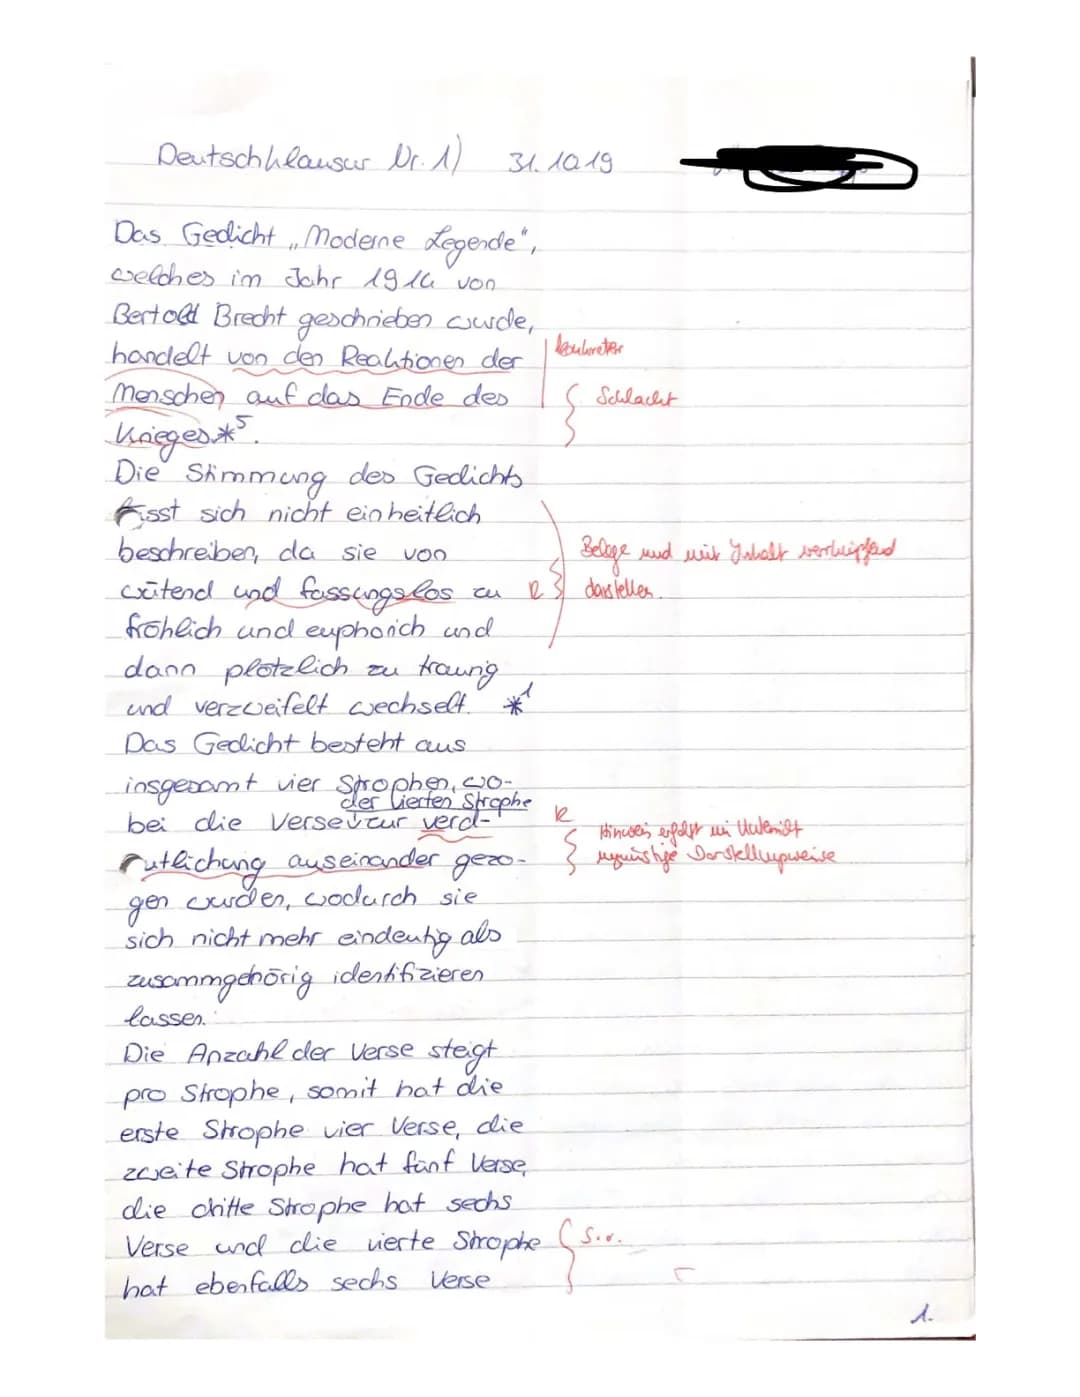 Deutschklausur Nr. 1) 31.10.19
Das Gedicht „Moderne Legende",
welches im Jahr 1914 von
Bertold Brecht geschrieben wurde,
handelt von den Reaktionen der
konkreter
Menschen auf das Ende des
Schlacht
Krieges.*5.
Die Stimmung des Gedichts
lässt sich nicht einheitlich
beschreiben, da sie von
Belege und mit Inhalt verknüpfend
wütend und fassungslos zu
R
darstellen.
fröhlich und euphorich und
dann plötzlich zu traurig
und verzweifelt wechselt. *1
Das Gedicht besteht aus
insgesamt vier Strophen, wo-
der vierten Strophe
bei die Verse zur verd-
R
Hinweis erfolgt im Unterricht
eutlichung auseinander gezo-
ungünstige Darstellungsweise
gen wurden, wodurch sie
sich nicht mehr eindeutig als
zusammgehörig identifizieren
lassen.
Die Anzahl der Verse steigt
pro Strophe, somit hat die
erste Strophe vier Verse, die
zweite Strophe hat fünf Verse,
die dritte Strophe hat sechs
Verse und die vierte Strophe
s.o.
hat ebenfalls sechs Verse
1.